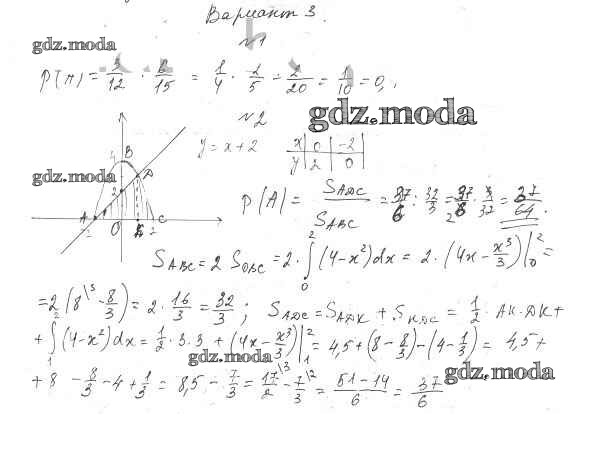 Вариант 3.
№1
gdz.moda
P(A) = 3/12 · 6/15 = 1/4 · 2/5 = 2/20 = 1/10 = 0,1
gdz.moda
№2
y = x + 2
x | 0 | -2
y | 2 | 0
gdz.moda
4 B D 2 A -2 O K 2 C
P(A) = S_ADC / S_ABC = 37/6 : 32/3 = 37/6 · 3/32 = 37/64.
S_ABC = 2 S_OBC = 2 · ∫₀² (4 - x²) dx = 2 · (4x - x³/3) |₀² =
= 2 (8 - 8/3) = 2 · 16/3 = 32/3 ; S_ADC = S_ADK + S_KDC = 1/2 · AK · DK +
+ ∫₁² (4 - x²) dx = 1/2 · 3 · 3 + (4x - x³/3) |₁² = 4,5 + (8 - 8/3) - (4 - 1/3) = 4,5 +
gdz.moda
gdz.moda
+ 8 - 8/3 - 4 + 1/3 = 8,5 - 7/3 = 17/2 - 7/3 = (51 - 14)/6 = 37/6